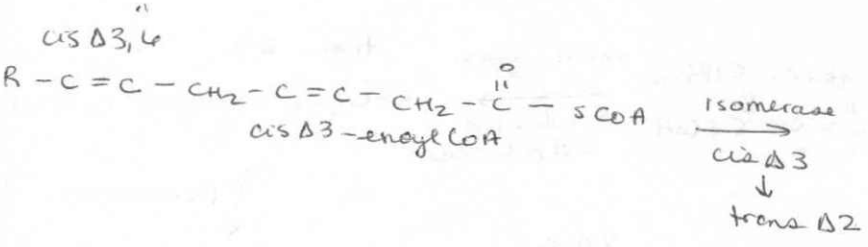 cis Δ3,6
O
R - C = C - CH2 - C = C - CH2 - C - S CoA
isomerase
cis Δ3-enoyl CoA
cis Δ3
↓
trans Δ2